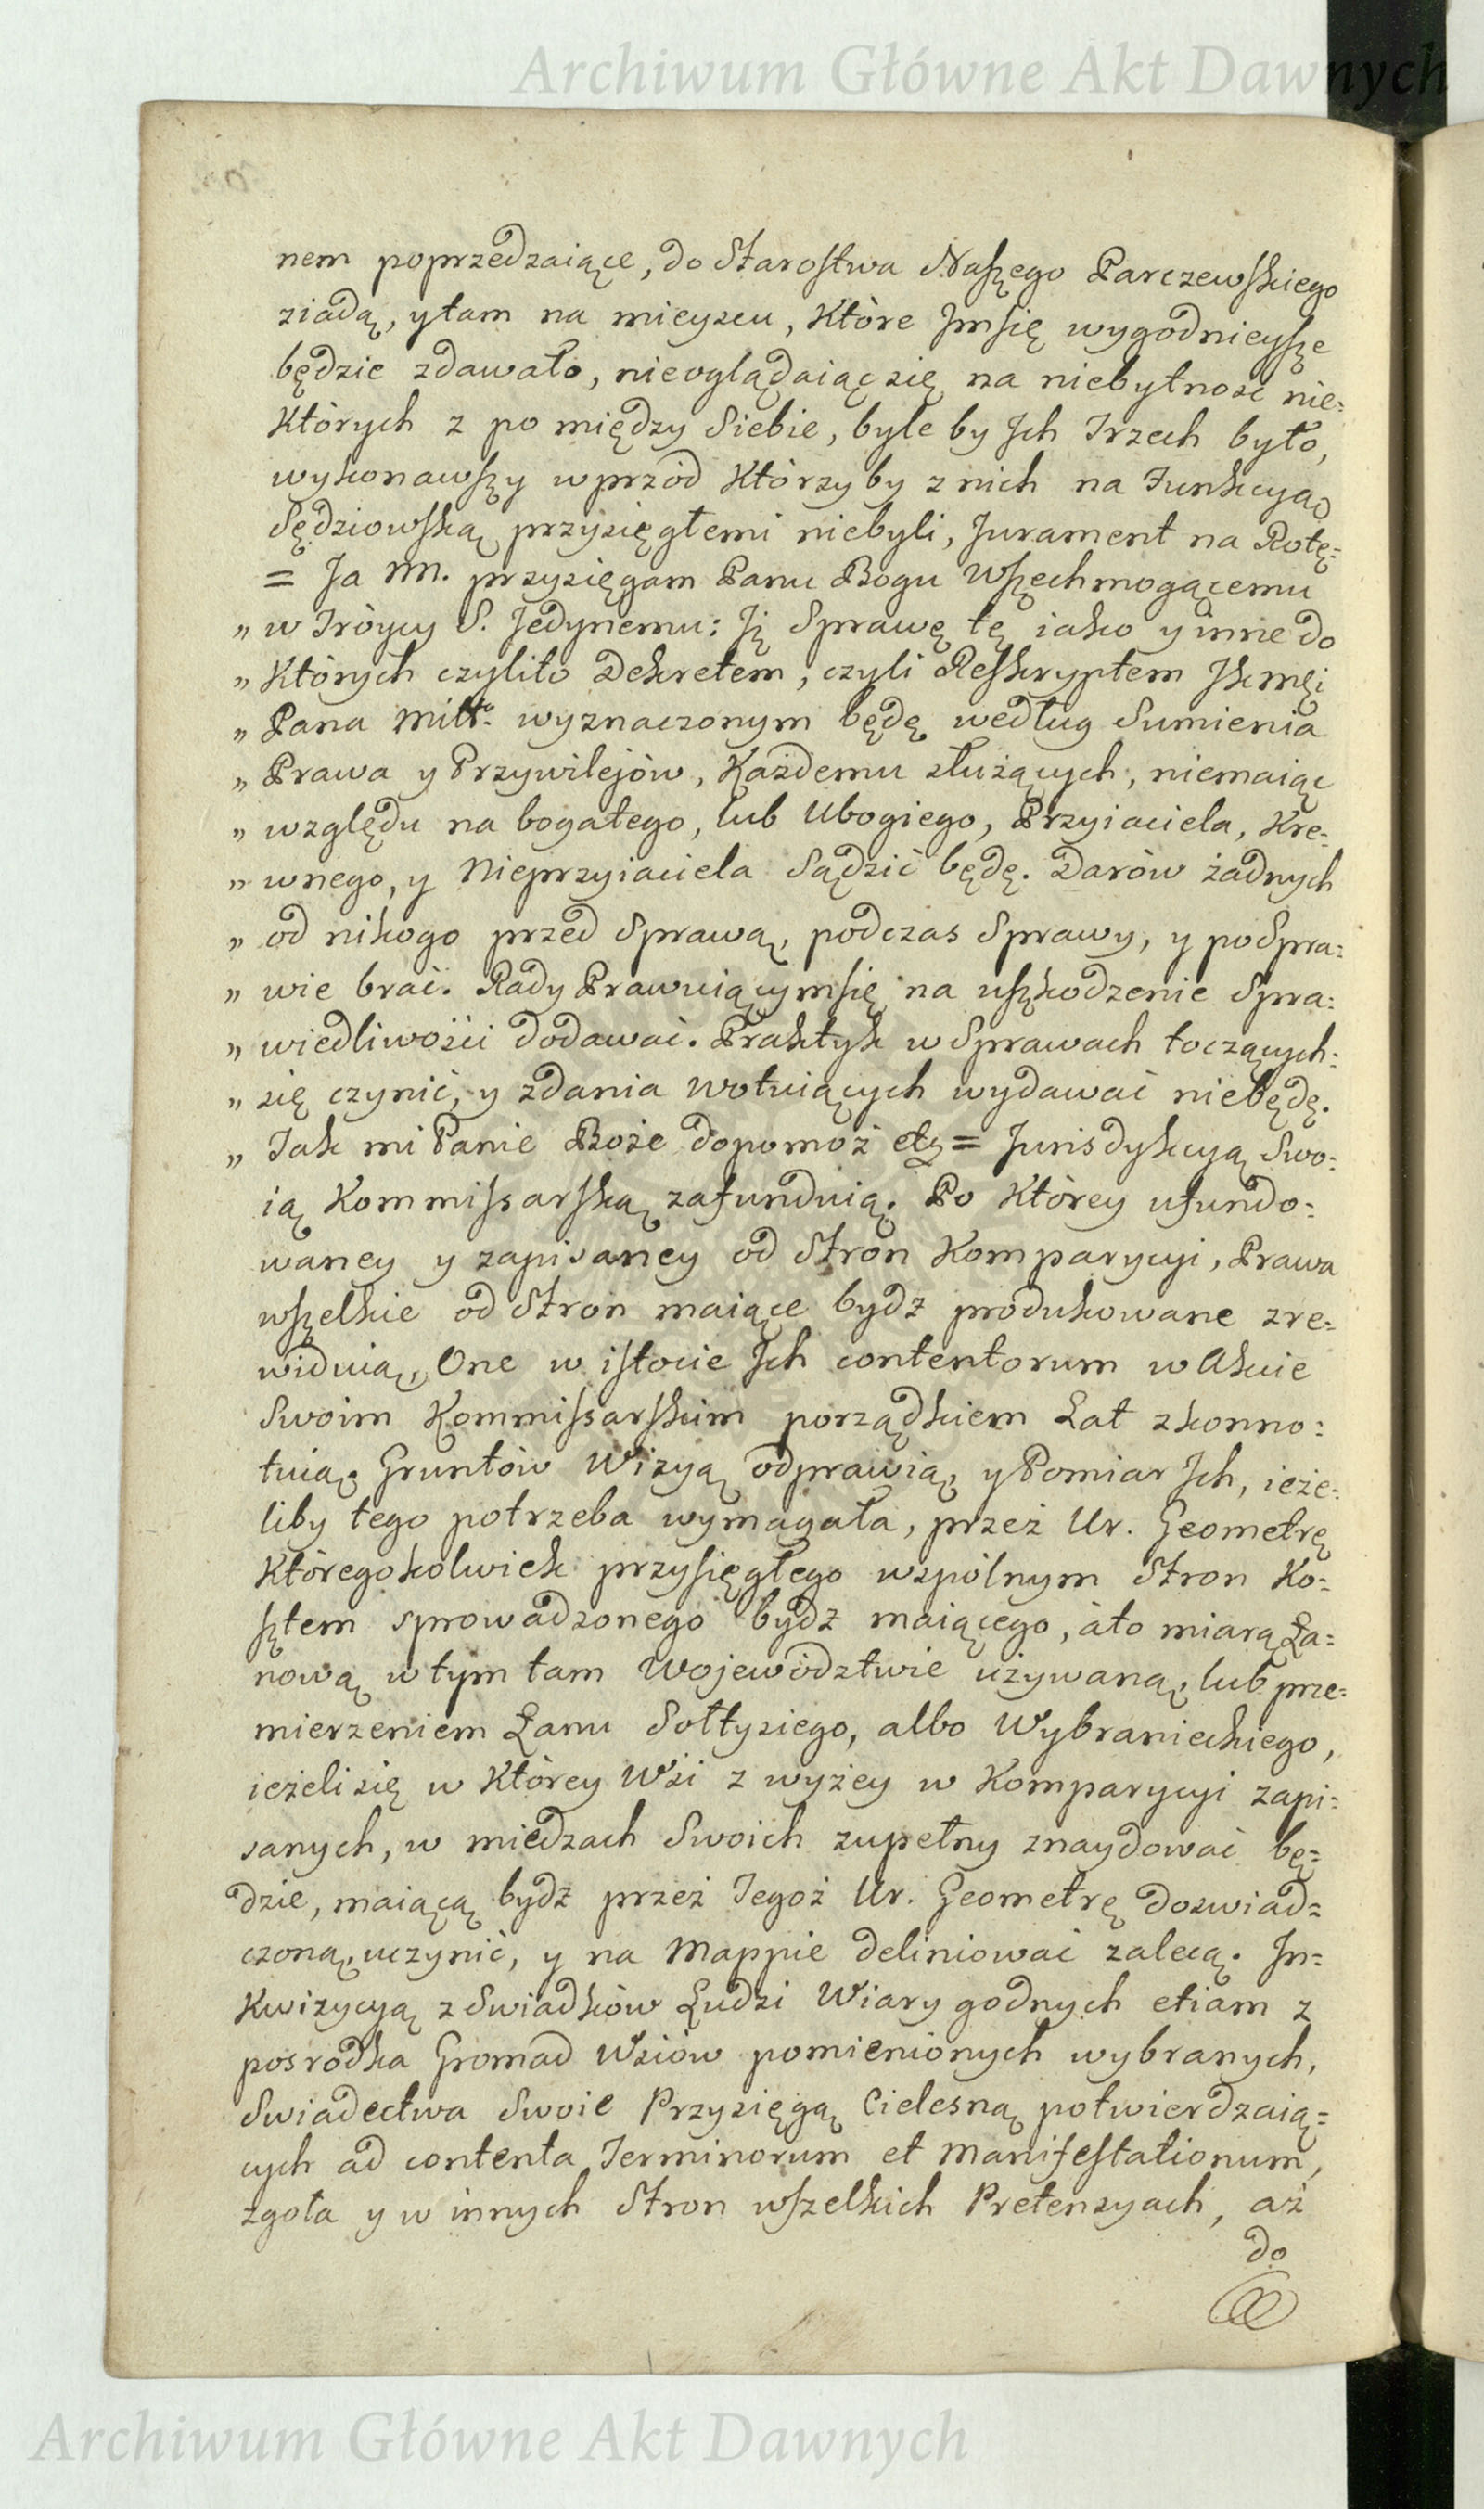 Archiwum Główne Akt Dawnych
nem poprzedzaiące, do Starostwa Naszego Parczewskiego
ziadą, y tam na mieyscu, Które Jm się wygodnieysze
będzie zdawało, nieoglądaiąc się na niebytnosc nie=
Których z po między Siebie, byle by Jch Trzech było,
wykonawszy wprzód Którzy by z nich na Funkcyą
Sędziowską przysięgłemi niebyli, Jurament na Rotę=
= Ja NN. przysięgam Panu Bogu Wszechmogącemu
„ w Tróycy S. Jedynemu: Jż Sprawę tę iako y inne do
„ Których czylito Dekretem, czyli Reskryptem JKmci
„ Pana Miłło wyznaczonym będę według Sumienia
„ Prawa y Przywilejów, Każdemu służących, niemaiąc
„ względu na bogatego, lub Ubogiego, Przyiaciela, Kre=
„ wnego, y Nieprzyiaciela Sądzić będę. Darów żadnych
„ od nikogo przed Sprawą, podczas Sprawy, y po Spra=
„ wie brać. Rady Prawuiącym się na uszkodzenie Spra=
„ wiedliwości dodawać. Praktyk w Sprawach toczących=
„ się czynić, y zdania wotuiących wydawać niebędę.
„ Tak mi Panie Boże dopomoż etc = Jurisdykcyą Swo=
ią Kommissarską zafunduią. Po Którey ufundo=
waney y zapisaney od Stron Komparycyi, Prawa
wszelkie od Stron maiące bydź produkowane zre=
widuią, One w istocie Jch contentorum w Akcie
Swoim Kommissarskim porządkiem Lat zkonno=
tuią. Gruntów Wizyą odprawią, y Pomiar Jch, ieże=
liby tego potrzeba wymagała, przez Ur. Geometrę
Któregokolwiek przysięgłego wspólnym Stron Ko=
sztem sprowadzonego bydź maiącego, áto miarą Ła=
nową w tym tam Województwie używaną, lub prze=
mierzeniem Łanu Sołtysiego, albo Wybranieckiego,
ieżeli się w Którey Wsi z wyżey w Komparycyi zapi=
sanych, w miedzach Swoich zupełny znaydować bę=
dzie, maiącą bydź przez Tegoż Ur. Geometrę doswiad=
czoną, uczynić, y na Mappie deliniować zalecą. In=
Kwizycyą z Swiadków Ludzi Wiary godnych etiam z
posrodka Gromad Wsiów pomienionych wybranych,
Swiadectwa Swoie Przysięgą Cielesną potwierdzaią=
cych ad contenta Terminorum et Manifestationum,
zgoła y w innych Stron wszelkich Pretensyach, aż
do
Archiwum Główne Akt Dawnych